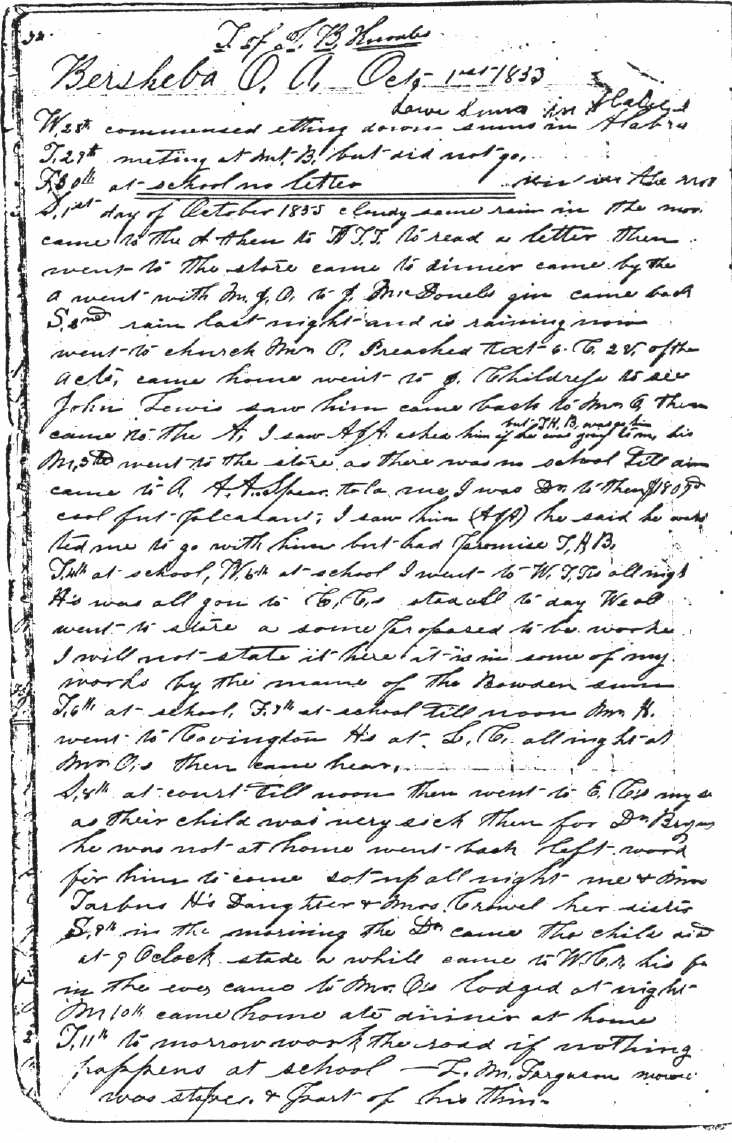 32.
J. of J. B. Knowles
Bersheba O. A. Oct 1st 1853
Lowe Sums in
W. 28th commensed etting down sums in
T. 29th meting at Mt. B. but did not go.
F. 30th at school no letter in the
S. 1st day of October 1853 cloudy some rain in the
came to the A then to T.T. to read a letter then
went to the store came to dinner came by the
A went with M. J. O. to J. McDonels gin came back
S. 2nd rain last night and is raining now
went to church Mr. P. Preached text 6. C. 28, of the
acts, came home went to J. Childress to see
John Lewis saw him came back to Mr. O. then
came to the A. I saw AfA. asked him if he was going to his
but T.H.B. was
M. 3rd went to the store as there was no school till
came to A. A. A. Spear told me I was Dr. to them
cool but pleasant; I saw him (AfA) he said he
ted me to go with him but had promise T. H B.
T. 4th at school, W. 5th at school I went to W. T. T's all nigh
H's was all gon to C. C.s stad all to day We all
went to store a some proposed to be
I will not state it here it is in some of my
works by the name of the Bowden sum
T. 6th at school, F. 7th at school till noon Mr. H.
went to Covington H's at L. C. all night at
Mr. O.s then came hear.
S. 8th at court till noon then went to E. C's my se
as their child was very sick then for Dr.
he was not at home went back left word
for him to come sot up all night me & Mrs
Tarbus H's Daughter & Mrs. Crowel her sister
S. 9th in the morining the Dr. came the child
at 9 Oclock stade a while came to W. C. his
in the eve, came to Mr. O's lodged at night
M. 10th came home ate dinner at home
T. 11th to morrow work the road if nothing
happens at school — L. M. Ferguson
was & part of his